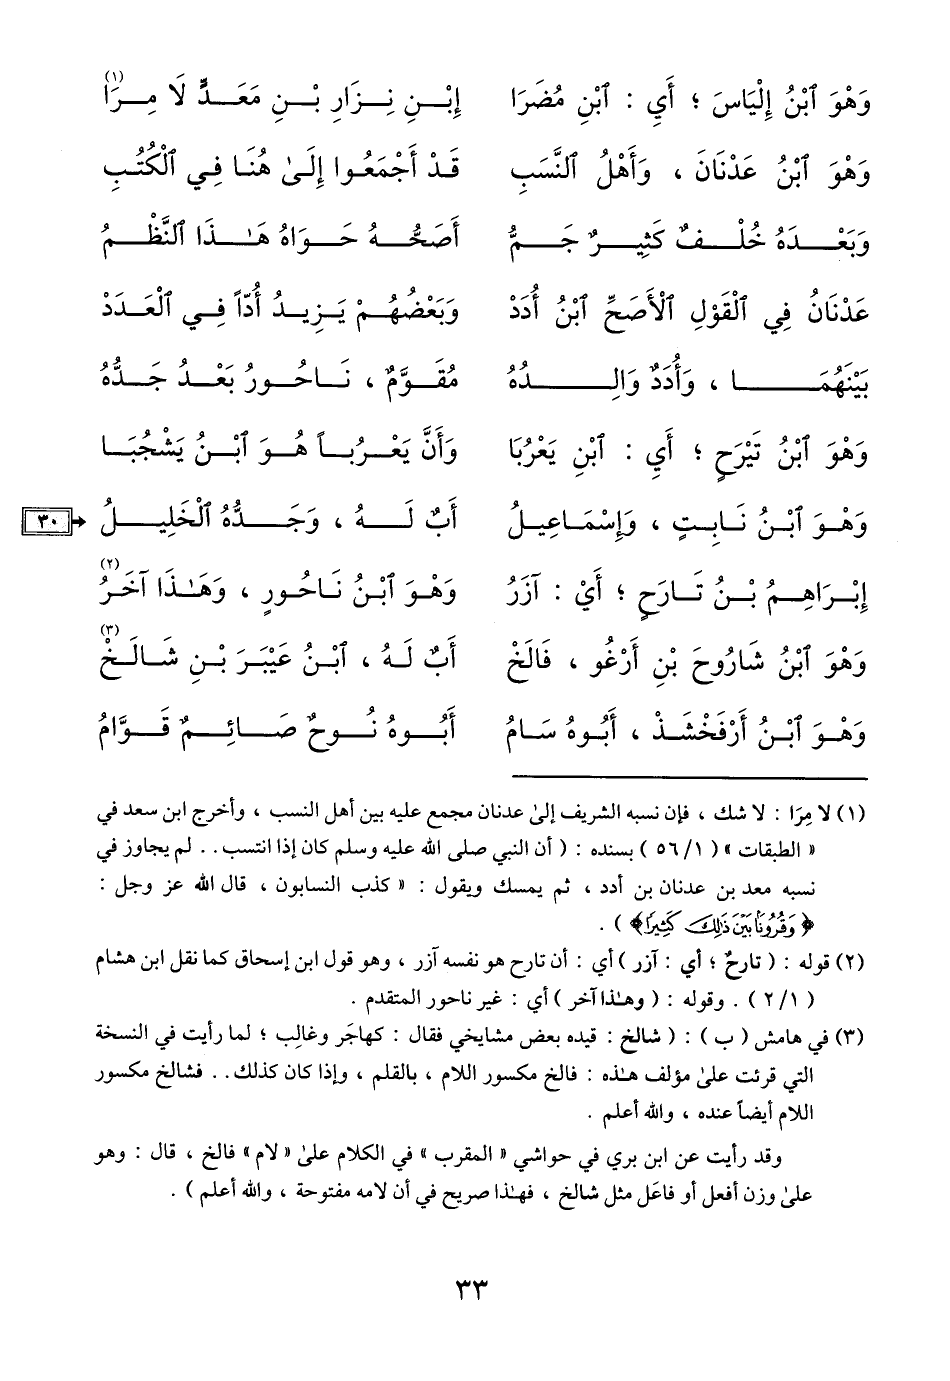 وَهْوَ ٱبْنُ إِلْيَاسَ ؛ أَيِ : ٱبْنِ مُضَرَا إِبْنِ نِزَارِ بْنِ مَعَدٍّ لَا مِرَا (١)
وَهْوَ ٱبْنُ عَدْنَانَ ، وَأَهْلُ ٱلنَّسَبِ قَدْ أَجْمَعُوا إِلَىٰ هُنَا فِي ٱلْكُتُبِ
وَبَعْدَهُ خُلْفٌ كَثِيرٌ جَمُّ أَصَحُّهُ حَوَاهُ هَـٰذَا ٱلنَّظْمُ
عَدْنَانُ فِي ٱلْقَوْلِ ٱلْأَصَحِّ ٱبْنُ أُدَدْ وَبَعْضُهُمْ يَزِيدُ أُدّاً فِي ٱلْعَدَدْ
بَيْنَهُمَا ، وَأُدَدٌ وَالِدُهُ مُقَوَّمٌ ، نَاحُورُ بَعْدُ جَدُّهُ
وَهْوَ ٱبْنُ تَيْرَحٍ ؛ أَيِ : ٱبْنِ يَعْرُبَا وَأَنَّ يَعْرُباً هُوَ ٱبْنُ يَشْجُبَا
وَهْوَ ٱبْنُ نَابِتٍ ، وَإِسْمَاعِيلُ أَبٌ لَهُ ، وَجَدُّهُ ٱلْخَلِيلُ ٣٠
إِبْرَاهِمُ بْنُ تَارَحٍ ؛ أَيْ : آزَرُ وَهْوَ ٱبْنُ نَاحُورٍ ، وَهَـٰذَا آخَرُ (٢)
وَهْوَ ٱبْنُ شَارُوحَ بْنِ أَرْغُو ، فَالَخْ أَبٌ لَهُ ، ٱبْنُ عَيْبَرَ بْنِ شَالَخْ (٣)
وَهْوَ ٱبْنُ أَرْفَخْشَذْ ، أَبُوهُ سَامُ أَبُوهُ نُوحٌ صَائِمٌ قَوَّامُ
(١) لا مِرَا : لا شك ، فإن نسبه الشريف إلىٰ عدنان مجمع عليه بين أهل النسب ، وأخرج ابن سعد في
« الطبقات » ( ١/ ٥٦ ) بسنده : ( أن النبي صلى الله عليه وسلم كان إذا انتسب . . لم يجاوز في
نسبه معد بن عدنان بن أدد ، ثم يمسك ويقول : « كذب النسابون ، قال الله عز وجل :
﴿ وَقُرُونًا بَيْنَ ذَٰلِكَ كَثِيرًا﴾ ) .
(٢) قوله : ( تارحٌ ؛ أي : آزر ) أي : أن تارح هو نفسه آزر ، وهو قول ابن إسحاق كما نقل ابن هشام
( ١/ ٢ ) . وقوله : ( وهـٰذا آخر ) أي : غير ناحور المتقدم .
(٣) في هامش ( ب ) : ( شالخ : قيده بعض مشايخي فقال : كهاجَر وغالِب ؛ لما رأيت في النسخة
التي قرئت علىٰ مؤلف هـٰذه : فالخ مكسور اللام ، بالقلم ، وإذا كان كذلك . . فشالخ مكسور
اللام أيضاً عنده ، والله أعلم .
وقد رأيت عن ابن بري في حواشي « المقرب » في الكلام علىٰ « لام » فالخ ، قال : وهو
علىٰ وزن أفعل أو فاعَل مثل شالخ ، فهـٰذا صريح في أن لامه مفتوحة ، والله أعلم ) .
٣٣